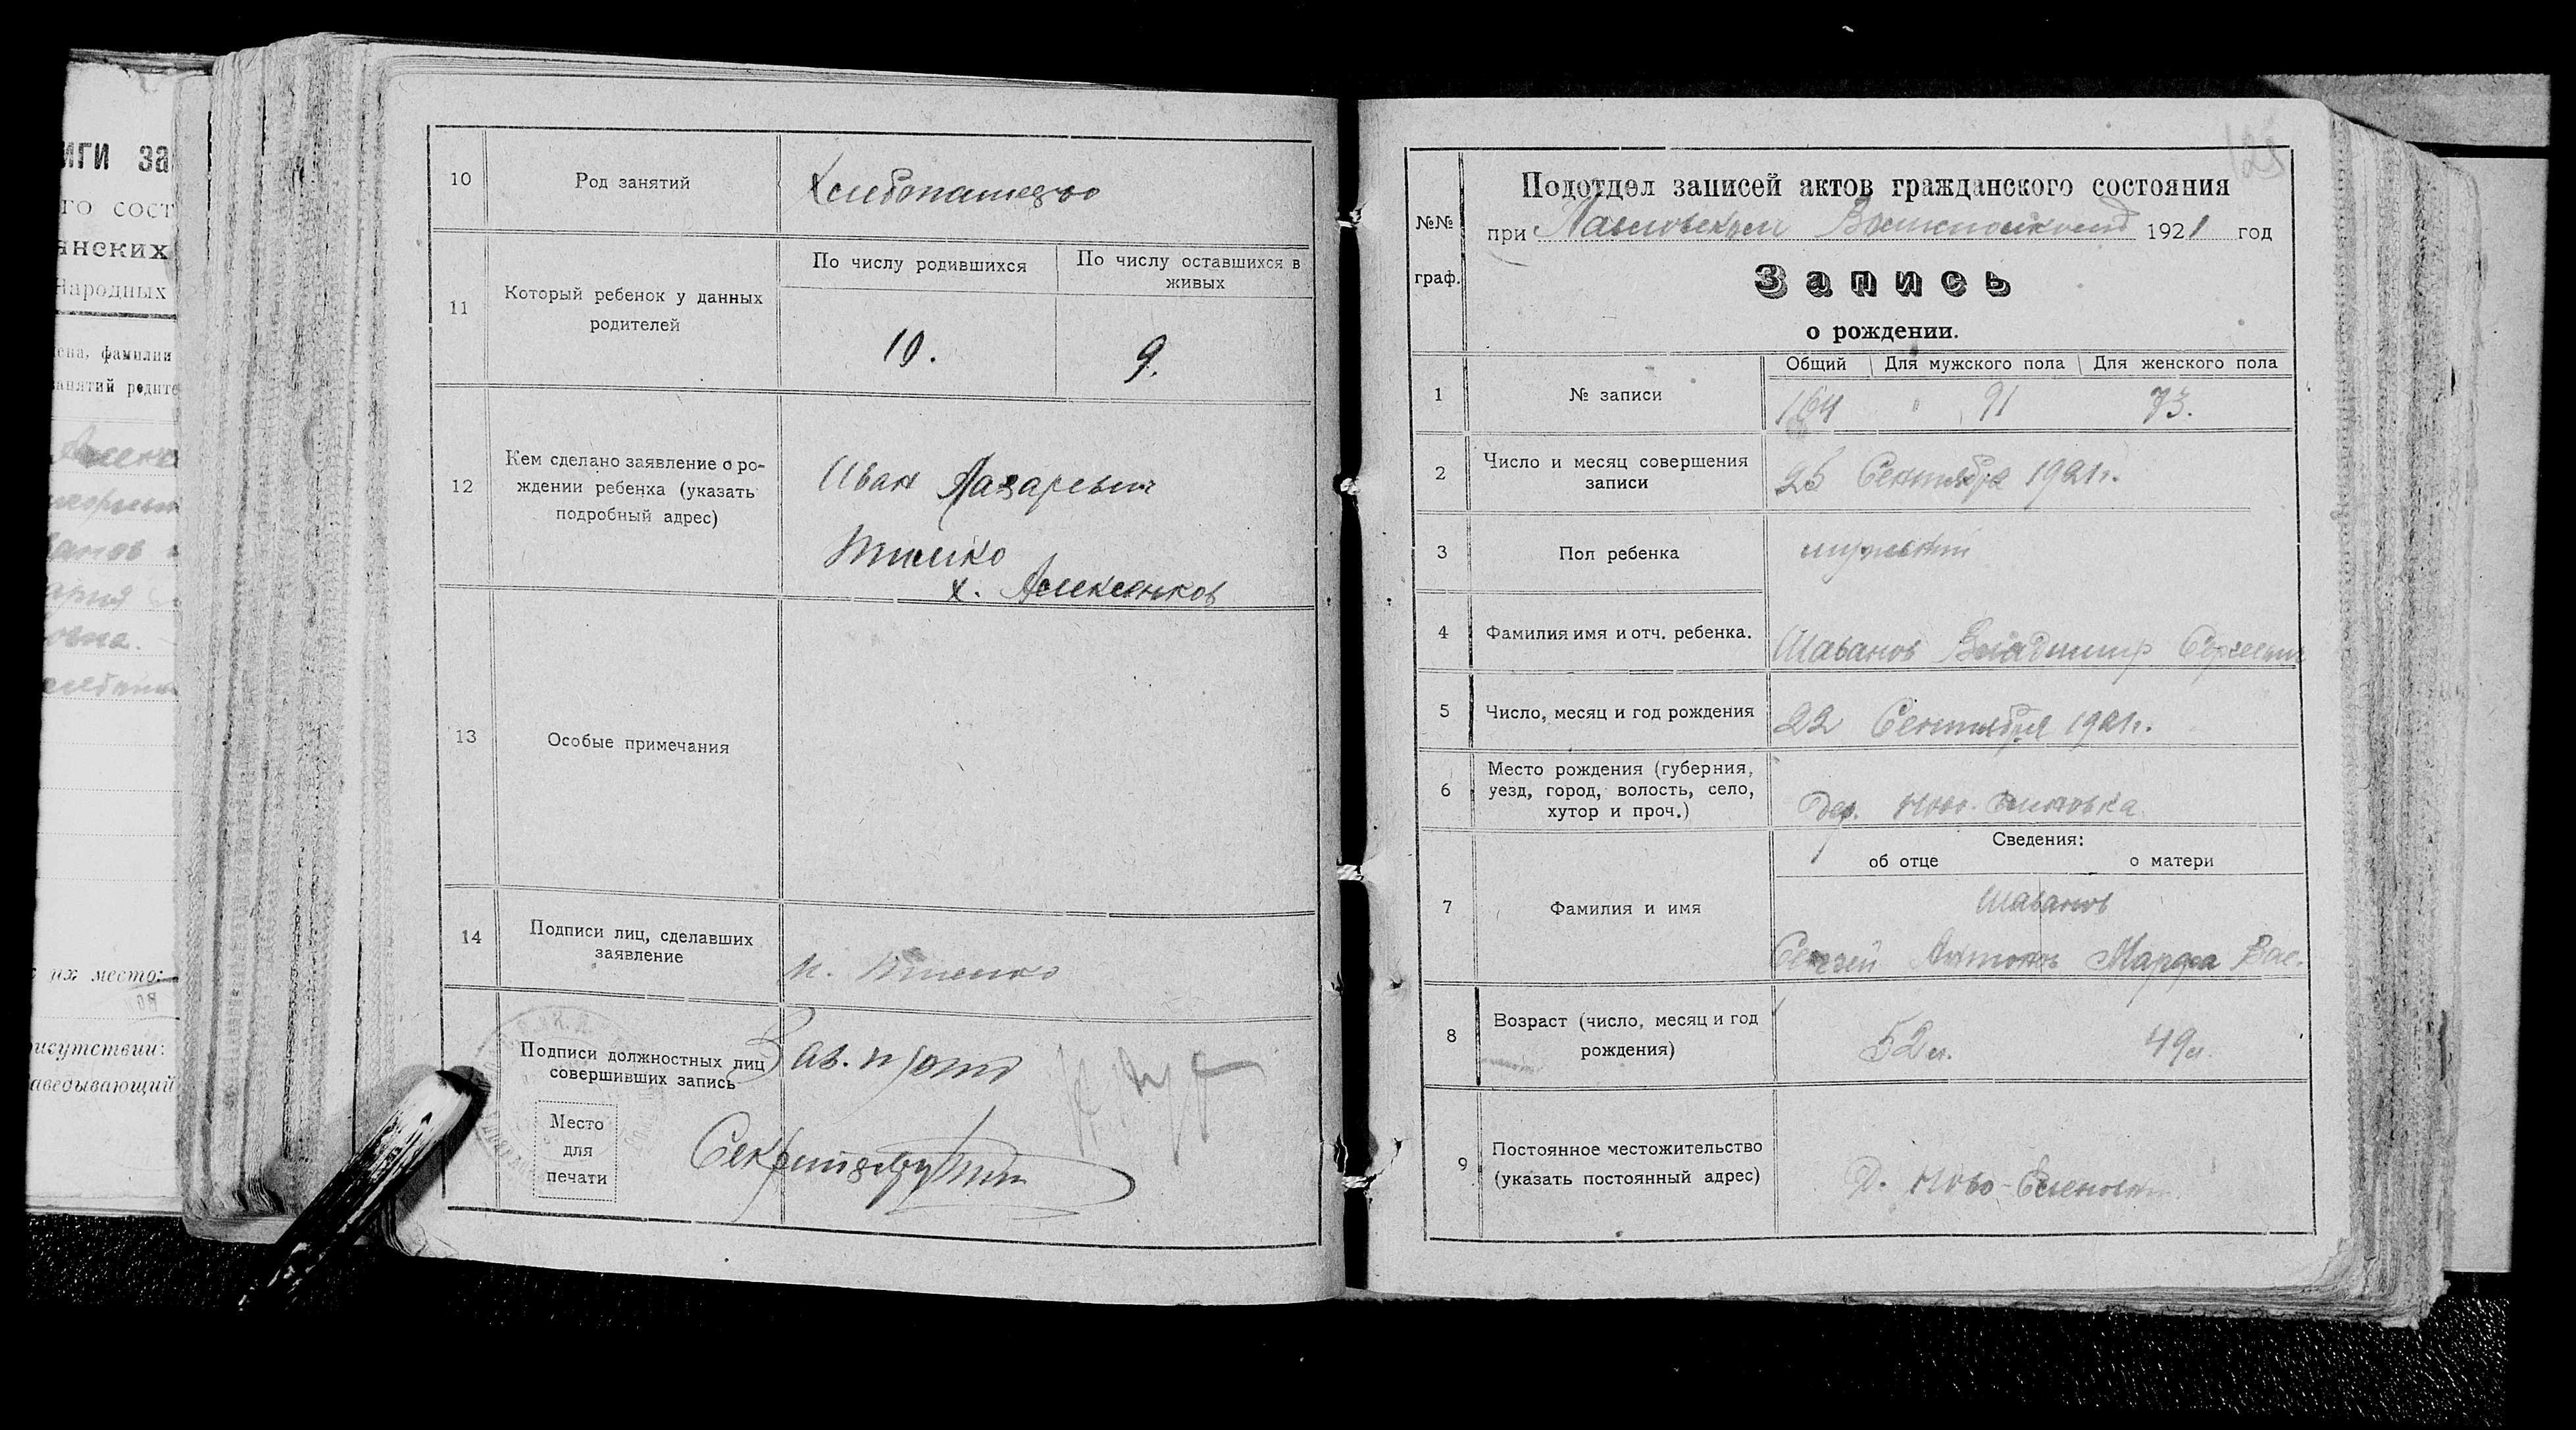 иги за
го сост
янских
Народных
ена, фамилия
анятий родите
анов
ария
овна.
их место:
исутствии:
аведывающий
10 Род занятий Хлебопашество
11 Который ребенок у данных родителей
По числу родившихся По числу оставшихся в живых
10. 9.
12 Кем сделано заявление о ро-
ждении ребенка (указать
подробный адрес)
Иван Лазаревич
Тимко
х. Алексенков
13 Особые примечания
14 Подписи лиц, сделавших
заявление
И.
Подписи должностных лиц
совершивших запись
Зав. п/отд
Секретарь
Место
для
печати
125
№№
граф.
Подотдел записей актов гражданского состояния
при Павловском Волисполкоме 1921 год
Запись
о рождении.
Общий Для мужского пола Для женского пола
1 № записи 164 91 73.
2 Число и месяц совершения
записи
25 Сентября 1921г.
3 Пол ребенка мужской
4 Фамилия имя и отч. ребенка. Шаванов Владимир Сергеевич
5 Число, месяц и год рождения 22 Сентября 1921г.
6 Место рождения (губерния,
уезд, город, волость, село,
хутор и проч.)
дер. Ново-Еленовка
Сведения:
об отце о матери
7 Фамилия и имя
Шаванов
Сергей Антонов Марфа Вас.
8 Возраст (число, месяц и год
рождения)
52 л. 49 л.
9 Постоянное местожительство
(указать постоянный адрес)
д. Ново-Еленовка